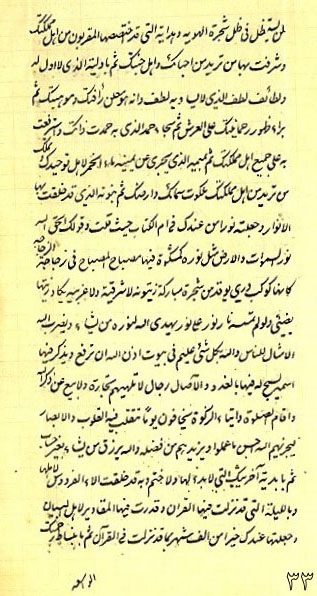 لمن استظل في ظل شجرة الهوية وبدايته التي قد خصصتها المقربون من اهل مملكتك
وشرفت بها من تريد من احبائك واهل جنتك ثم باوليته الذي لا اول له
ولطائف لطف الذي لا وبه لطف ذاته
ظهور رحمانيتك على العرش ثم حمد الذي به حمدت ذاتك واسترفعت
به على جميع اهل مملكتك ثم الذي يجري عن يمينه ماء الحمر لاهل توحيدك
من تريد من اهل مملكتك ملكوت سمائك وارضك ثم بنوره الذي قد خلقت بها
الانوار وجعلته نورا من عندك في ام الكتاب حيث قلت وقولك الحق الله
نور السموات والارض مثل نوره كمشكوة فيها مصباح المصباح في زجاجة الزجاجة
كانها كوكب دري يوقد من شجرة مباركة زيتونة لا شرقية ولا غربية يكاد زيتها
يضئ ولو لم تمسسه نار نور على نور يهدي الله لنوره من يشاء ويضرب الله
الامثال للناس والله بكل شئ عليم في بيوت اذن الله ان ترفع ويذكر فيها
اسمه يسبح له فيها بالغدو والآصال رجال لا تلهيهم تجارة ولا بيع عن ذكر الله
واقام الصلوة وايتاء الزكوة يخافون يوما تتقلب فيه القلوب والابصار
ليجزيهم الله احسن ما عملوا ويزيدهم من فضله والله يرزق من يشاء بغير حساب
ثم بابديته آخريتك التي لا بدء لها ولا ختم وبه قد خلقت الآء الفردوس لاهلها
وبالليلة التي قد نزلت فيها القرآن وقدرت فيها المقادير لاهل البيان
وجعلتها عندك خيرا من الف شهر بما قد نزلت في القرآن ثم بانبساط رحمتك
٣٣